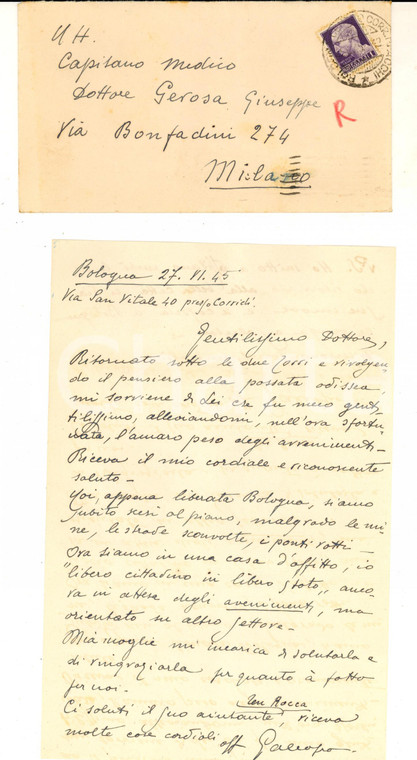 N. H.
Capitano Medico
Dottore Gerosa Giuseppe
Via Bonfadini 274
Milano
R
Bologna 27. VI. 45
Via San Vitale 40 presso Corridi
Gentilissimo Dottore,
Ritornato sotto le due Torri e rivolgen
do il pensiero alla passata odissea,
mi sorviene di Lei che fu meco genti
tilissimo, alleviandomi, nell'ora sfortu
nata, l'amaro peso degli avvenimenti -
Riceva il mio cordiale e riconoscente
saluto -
Noi, appena liberata Bologna, siamo
subito scesi al piano, malgrado le mi
ne, le strade sconvolte, i ponti rotti -
Ora siamo in una casa d'affitto, io
"libero cittadino in libero stato", anco
ra in attesa degli avvenimenti, ma
orientato su altro settore -
Mia moglie mi incarica di salutarla e
di ringraziarla per quanto à fatto
per noi.
Ci saluti il suo aiutante, Ten Rocca riceva
molte cose cordiali
aff